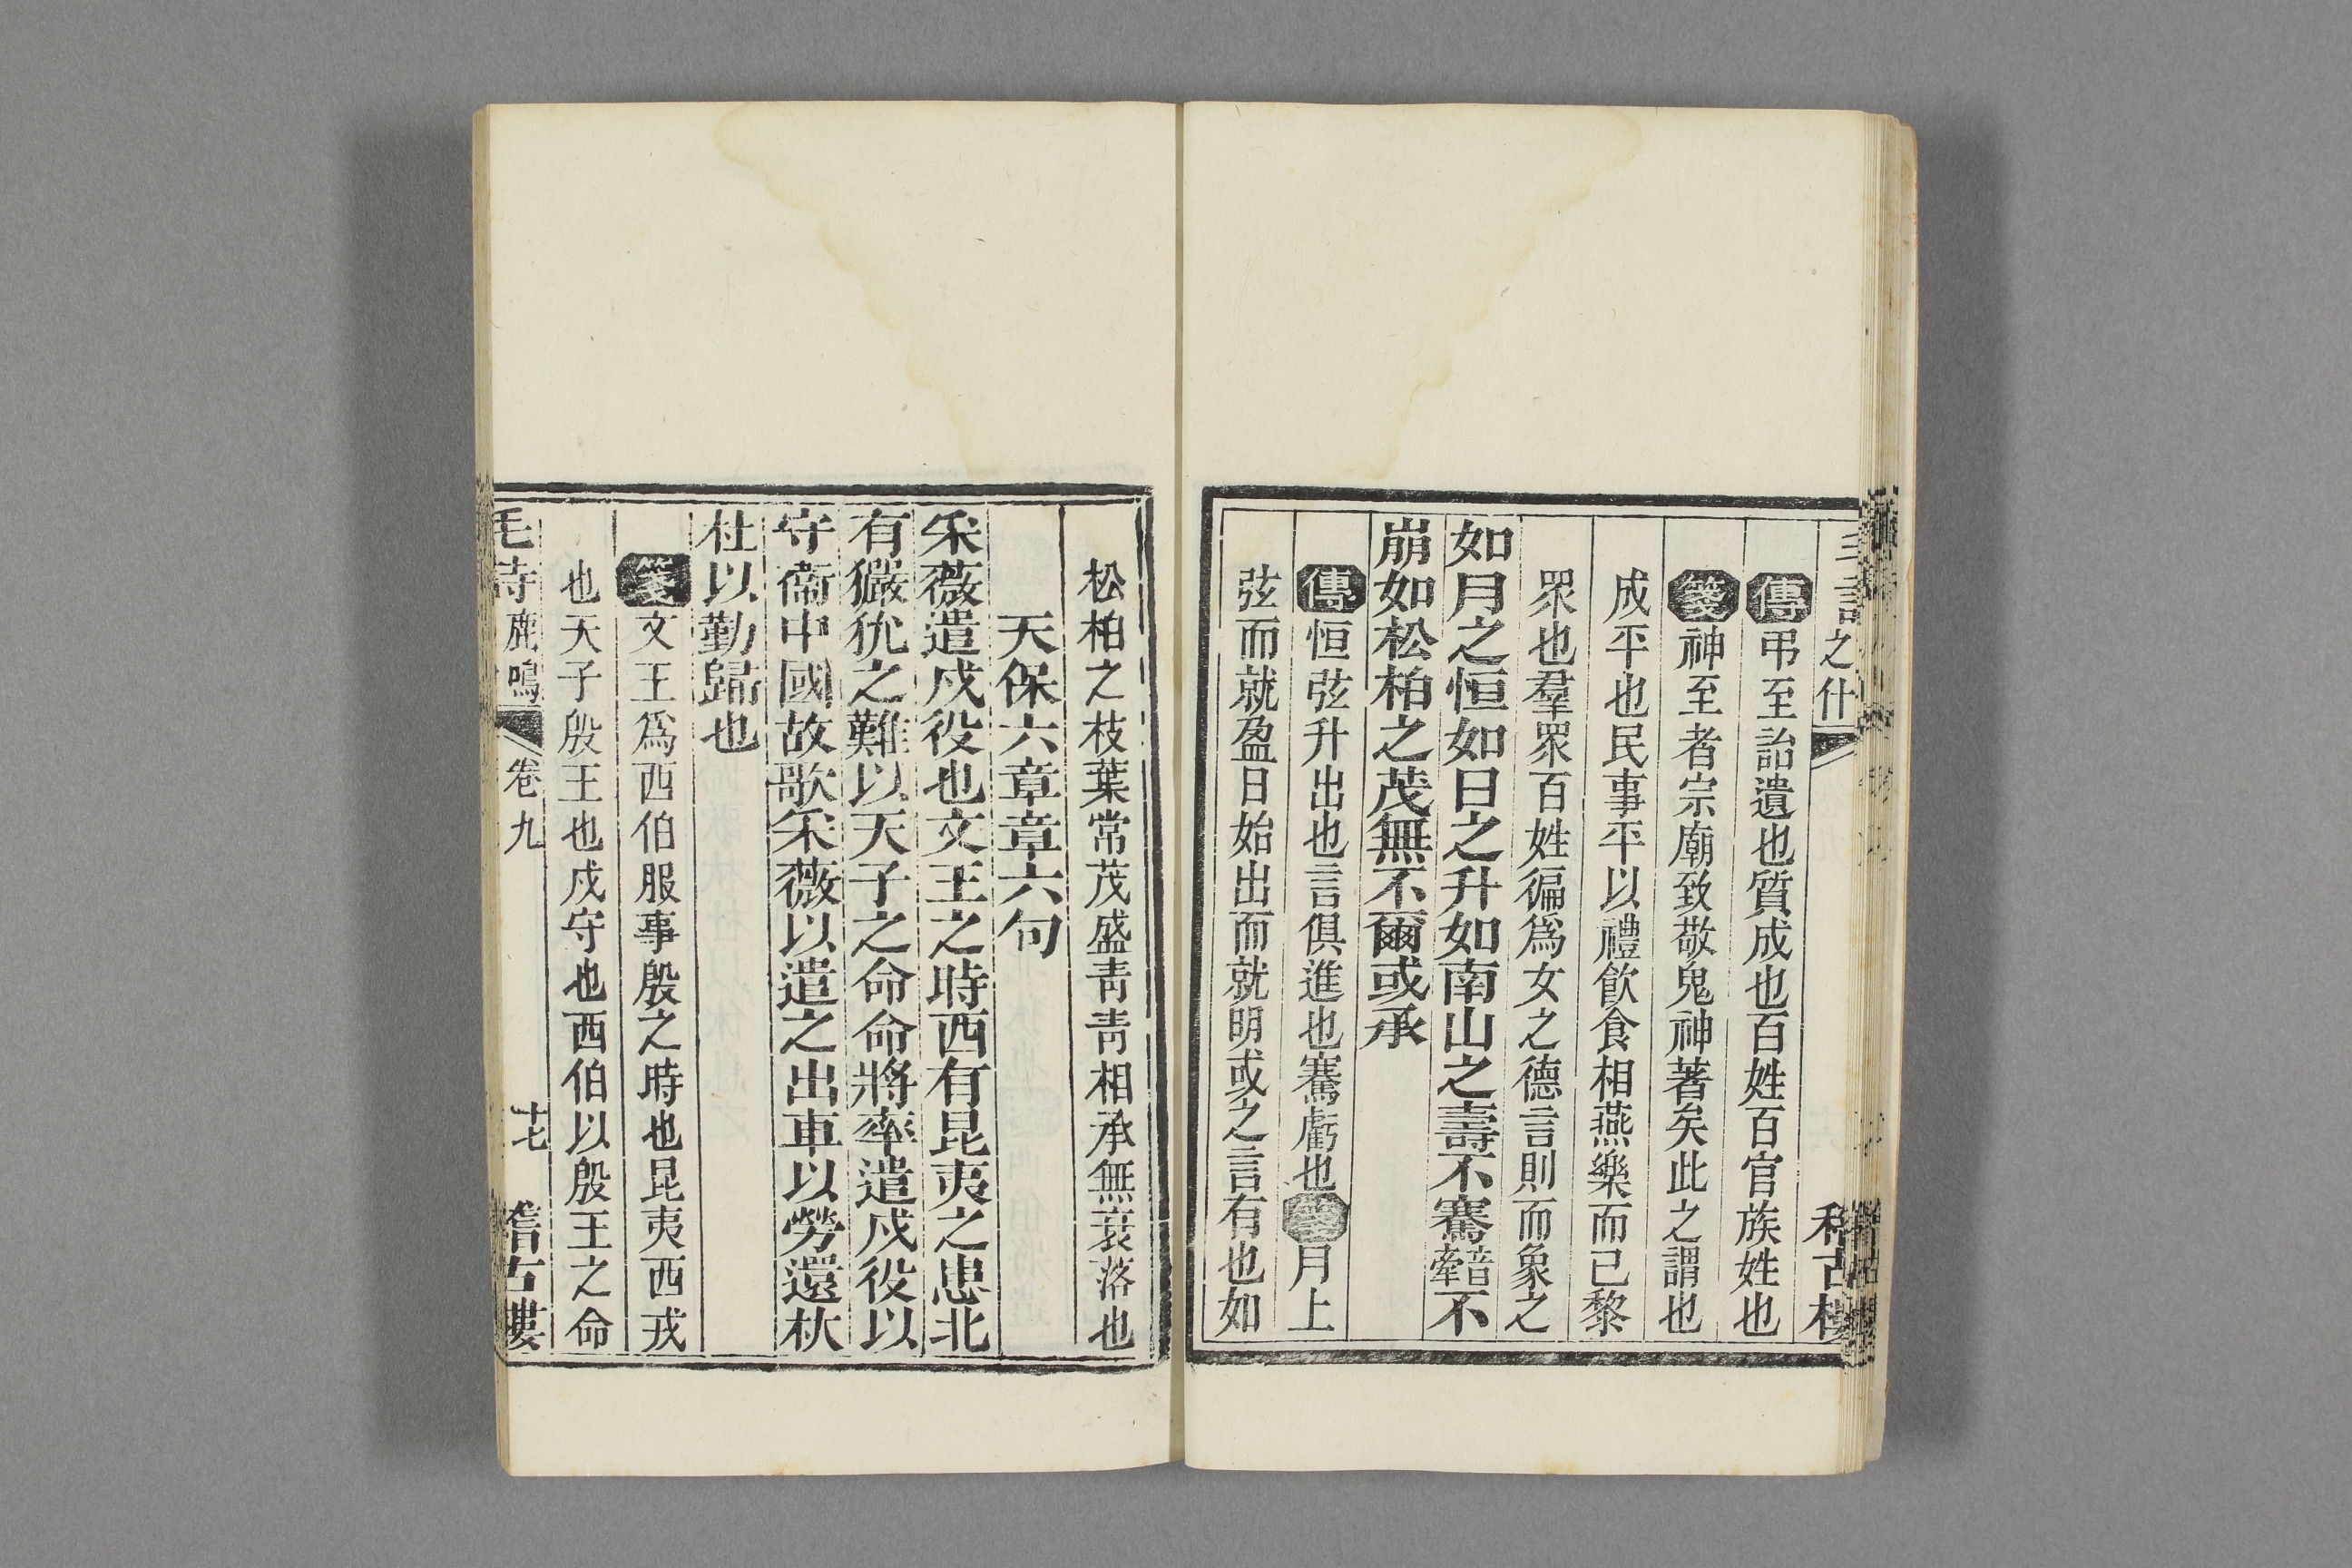 之什
傳弔至詒遺也質成也百姓百官族姓也
箋神至者宗廟致敬鬼神著矣此之謂也
成平也民事平以禮飲食相燕樂而已黎
眾也羣眾百姓徧爲女之德言則而象之
如月之恒如日之升如南山之壽不騫音牽不
崩如松柏之茂無不爾或承
傳恒弦升出也言俱進也騫虧也箋月上
弦而就盈日始出而就明或之言有也如
松柏之枝葉常茂盛靑靑相承無衰落也
天保六章章六句
采薇遣戍役也文王之時西有昆夷之患北
有玁狁之難以天子之命命將率遣戍役以
守衞中國故歌采薇以遣之出車以勞還杕
杜以勤歸也
箋文王爲西伯服事殷之時也昆夷西戎
也天子殷王也戍守也西伯以殷王之命
毛詩鹿鳴 卷九 十七 稽古樓